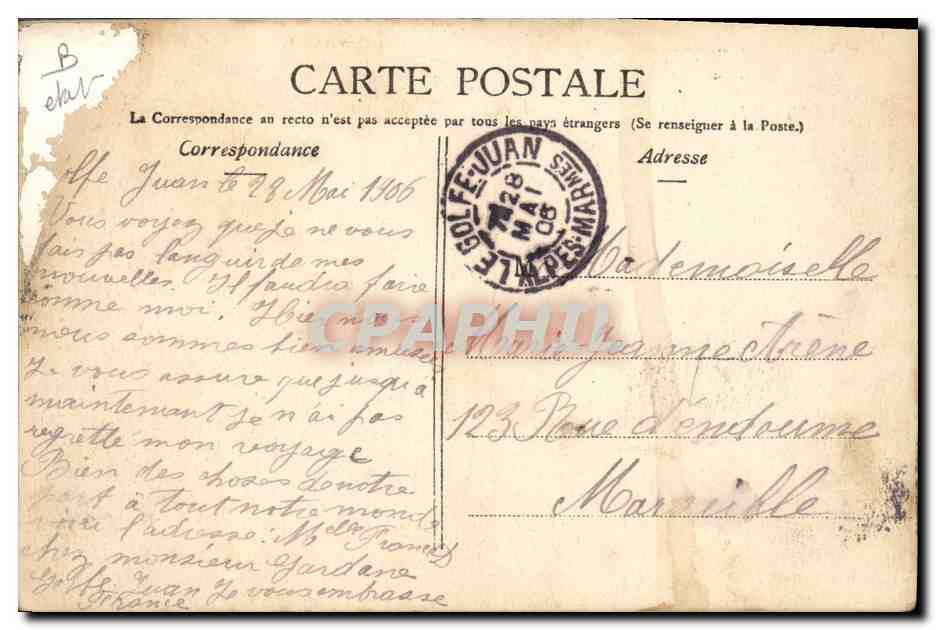 B
etat
CARTE POSTALE
La Correspondance au recto n'est pas acceptée par tous les pays étrangers (Se renseigner à la Poste.)
Correspondance
olfe Juan le 28 Mai 1906
Vous voyez que je ne vous
fais pas languir de mes
nouvelles. Il faudra faire
comme moi. Hier nous
nous sommes bien amusés
Je vous assure que jusqu'à
maintenant je n'ai pas
regretté mon voyage
Bien des choses de notre
part à tout notre monde
l'adresse: Mlle Francis
chez monsieur Gardane
Golfe Juan Je vous embrasse
France
LE GOLFE-JUAN
ALPES-MARMES
28
MAI
06
Adresse
M
Mademoiselle
Marie Jeanne Arène
123 Rue d'endoume
Marseille
CPAPHIL